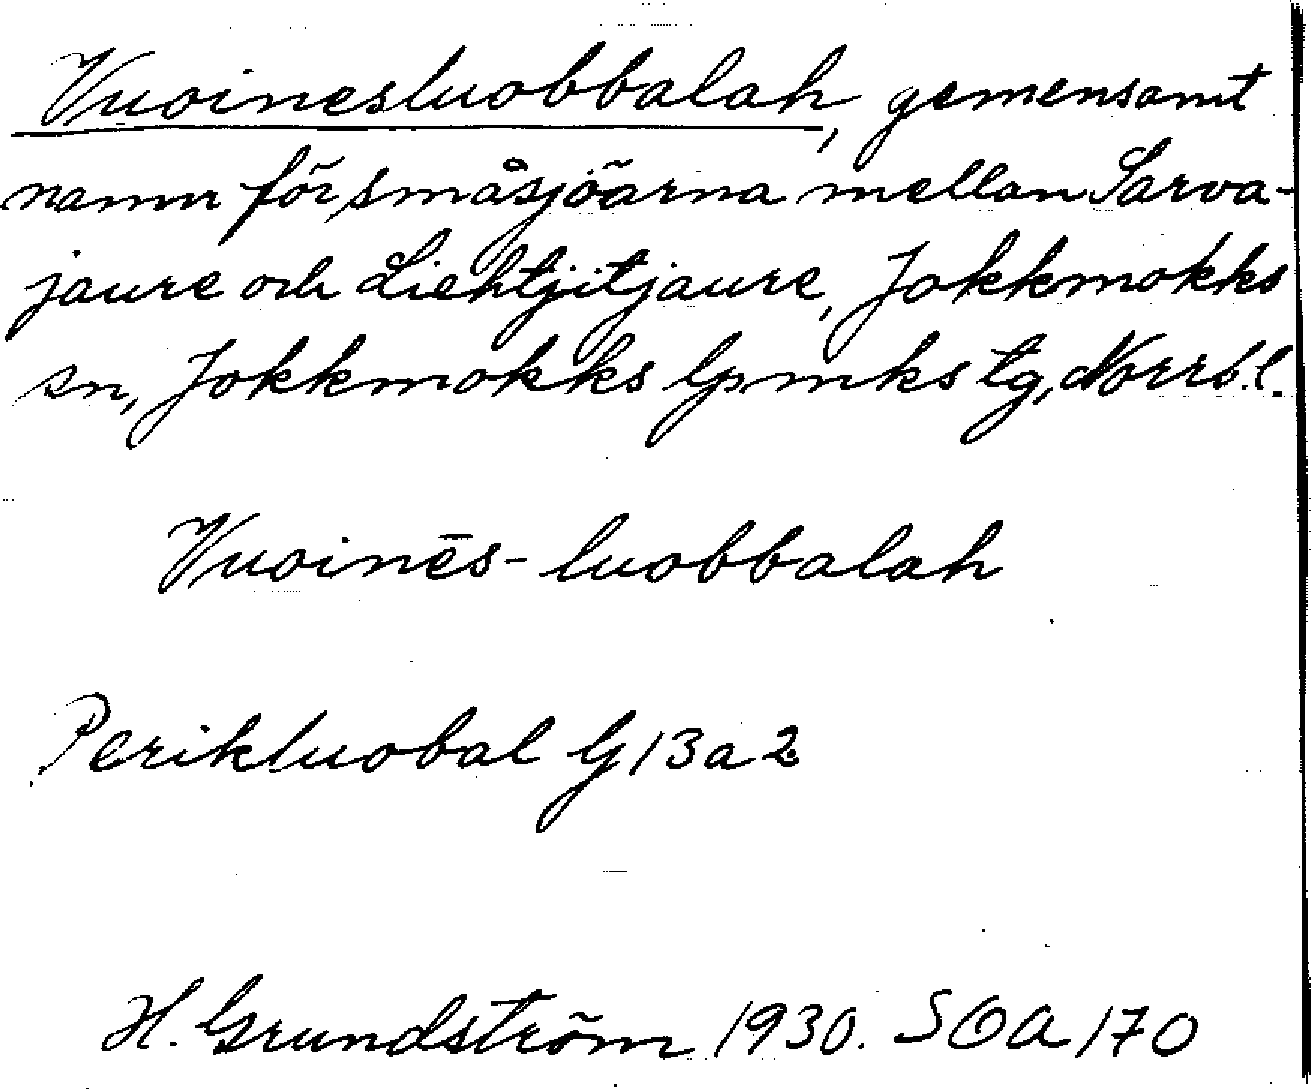 Vuoinesluobbalah, gemensamt
namn för småsjöarna mellan Sarva-
jaure och Liehtjitjaure, Jokkmokks
sn, Jokkmokks lpmks tg, Norrb.l.
Vuoinēs-luobbalah
Perikluobal G13a2
H. Grundström 1930. SOA 170